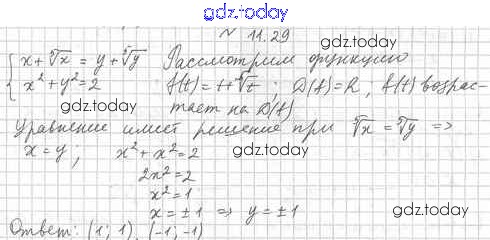 gdz.today
№ 11.29
gdz.today
{ x + ⁵√x = y + ⁵√y Рассмотрим функцию
x² + y² = 2 f(t) = t + ⁵√t ; D(f) = R, f(t) возрас-
gdz.today
gdz.today
тает на D(f)
Уравнение имеет решение при ⁵√x = ⁵√y =>
x = y; x² + x² = 2
gdz.today
2x² = 2
x² = 1
x = ±1 => y = ±1
gdz.today
Ответ: (1; 1), (-1; -1)